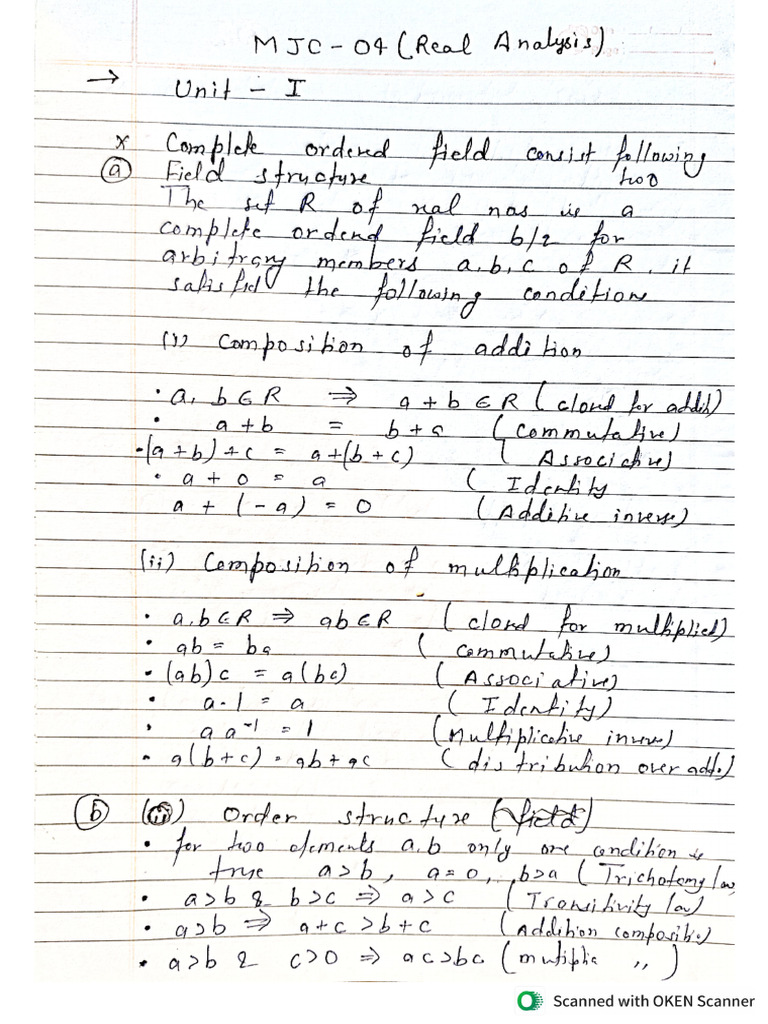 MJC-04 (Real Analysis)
→ Unit - I
* Complete ordered field consist following two
(a) Field structure
The set R of real nos is a
complete ordered field b/z for
arbitrary members a, b, c of R, it
satisfied the following conditions
(i) Composition of addition
• a, b ∈ R ⇒ a + b ∈ R (closed for addith)
• a + b = b + a (Commutative)
• (a + b) + c = a + (b + c) (Associative)
• a + 0 = a (Identity
a + (-a) = 0 (Additive inverse)
(ii) Composition of multiplication
• a, b ∈ R ⇒ ab ∈ R (closed for multiplied)
• ab = ba (Commutative)
• (ab)c = a(bc) (Associative)
• a·1 = a (Identity)
• a a⁻¹ = 1 (Multiplicative inverse)
• a(b+c) = ab + ac (distribution over add.)
(b) Order structure (field)
• for two elements a, b only one condition is
true a > b, a = 0, b > a (Trichotomy law
• a > b & b > c ⇒ a > c (Transitivity law)
• a > b ⇒ a + c > b + c (Addition compositio)
• a > b & c > 0 ⇒ ac > bc (mutiplia ,, )
Scanned with OKEN Scanner